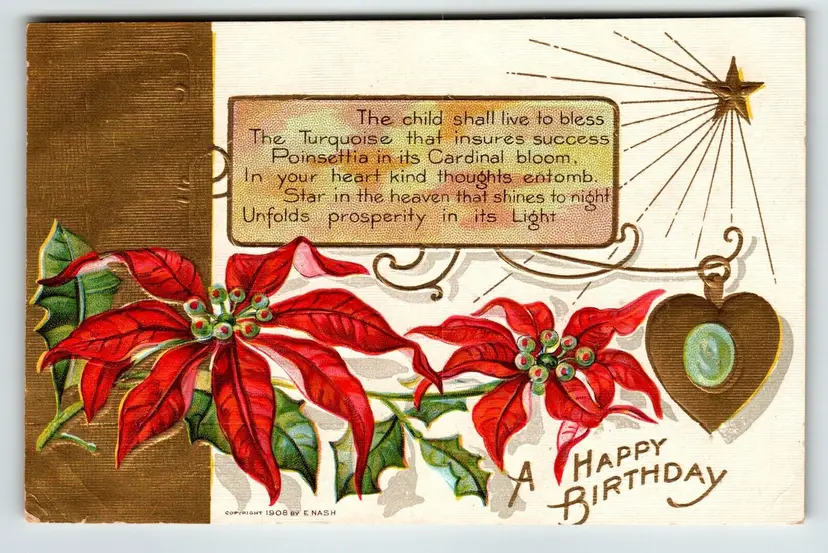 The child shall live to bless
The Turquoise that insures success
Poinsettia in its Cardinal bloom,
In your heart kind thoughts entomb.
Star in the heaven that shines to night
Unfolds prosperity in its Light
A HAPPY
BIRTHDAY
COPYRIGHT 1908 BY E.NASH